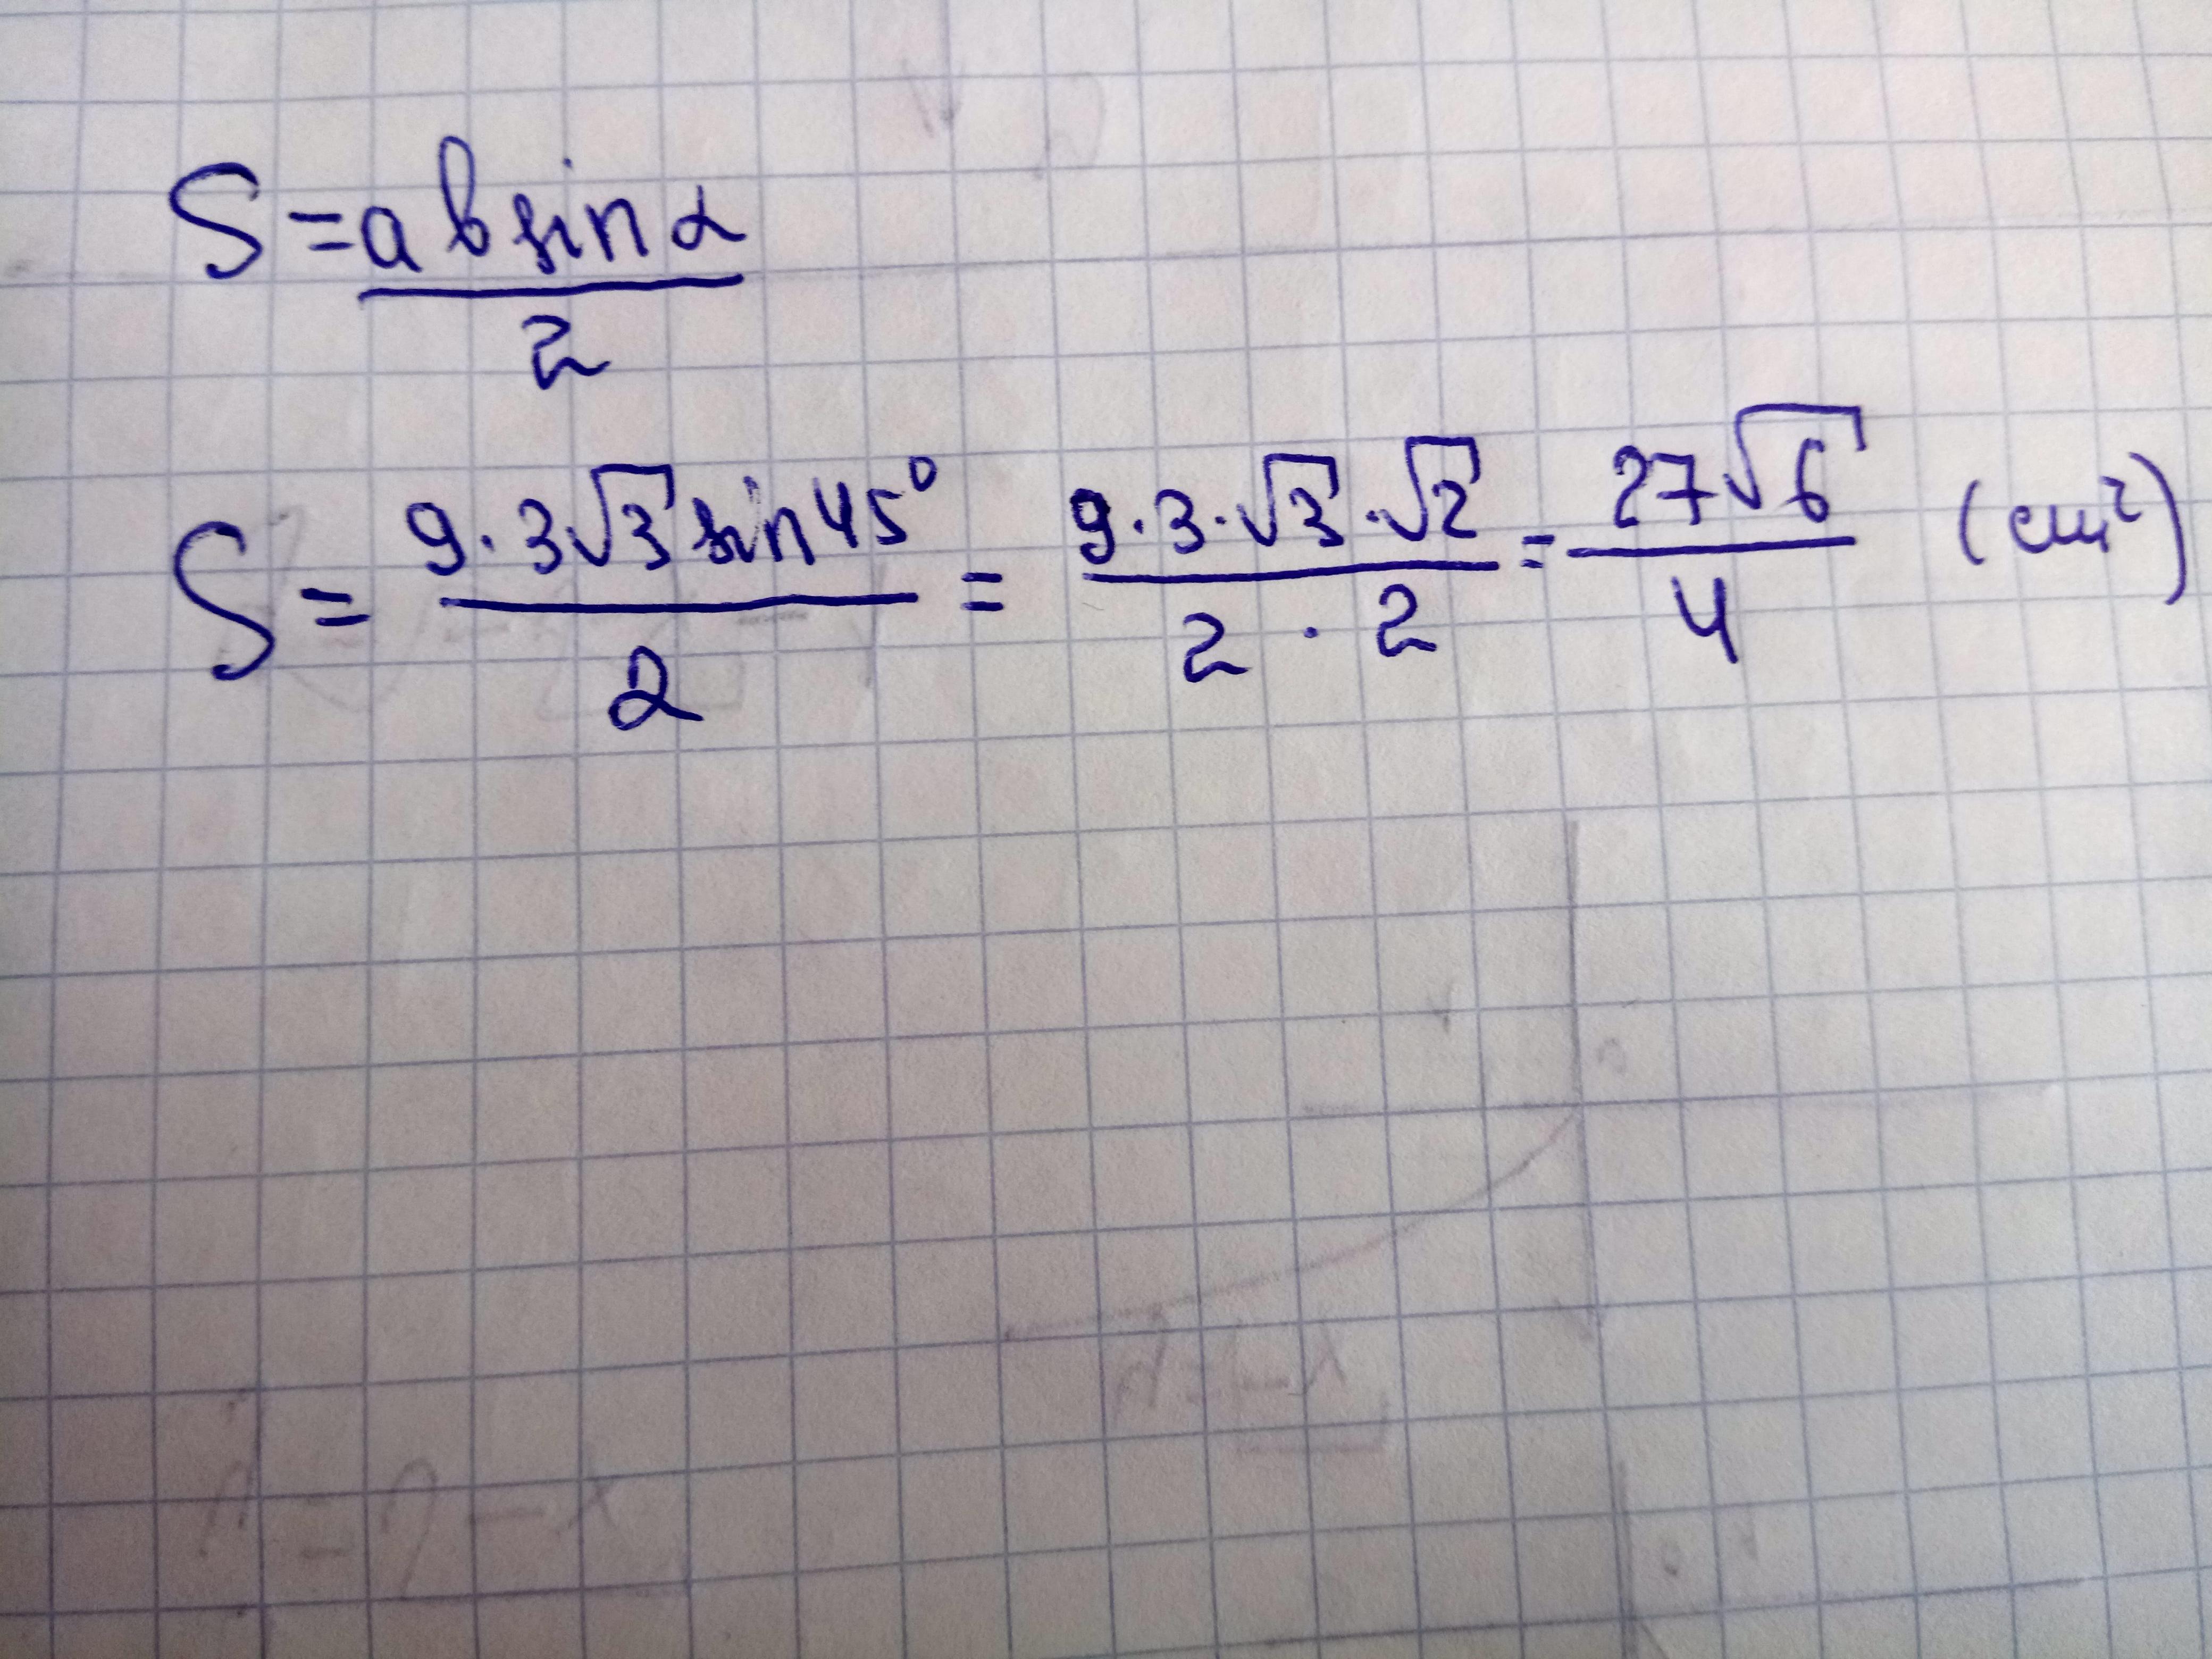 S = a b sin α / 2
S = 9 · 3√3 sin 45° / 2 = 9 · 3 · √3 · √2 / 2 · 2 = 27√6 / 4 (см²)